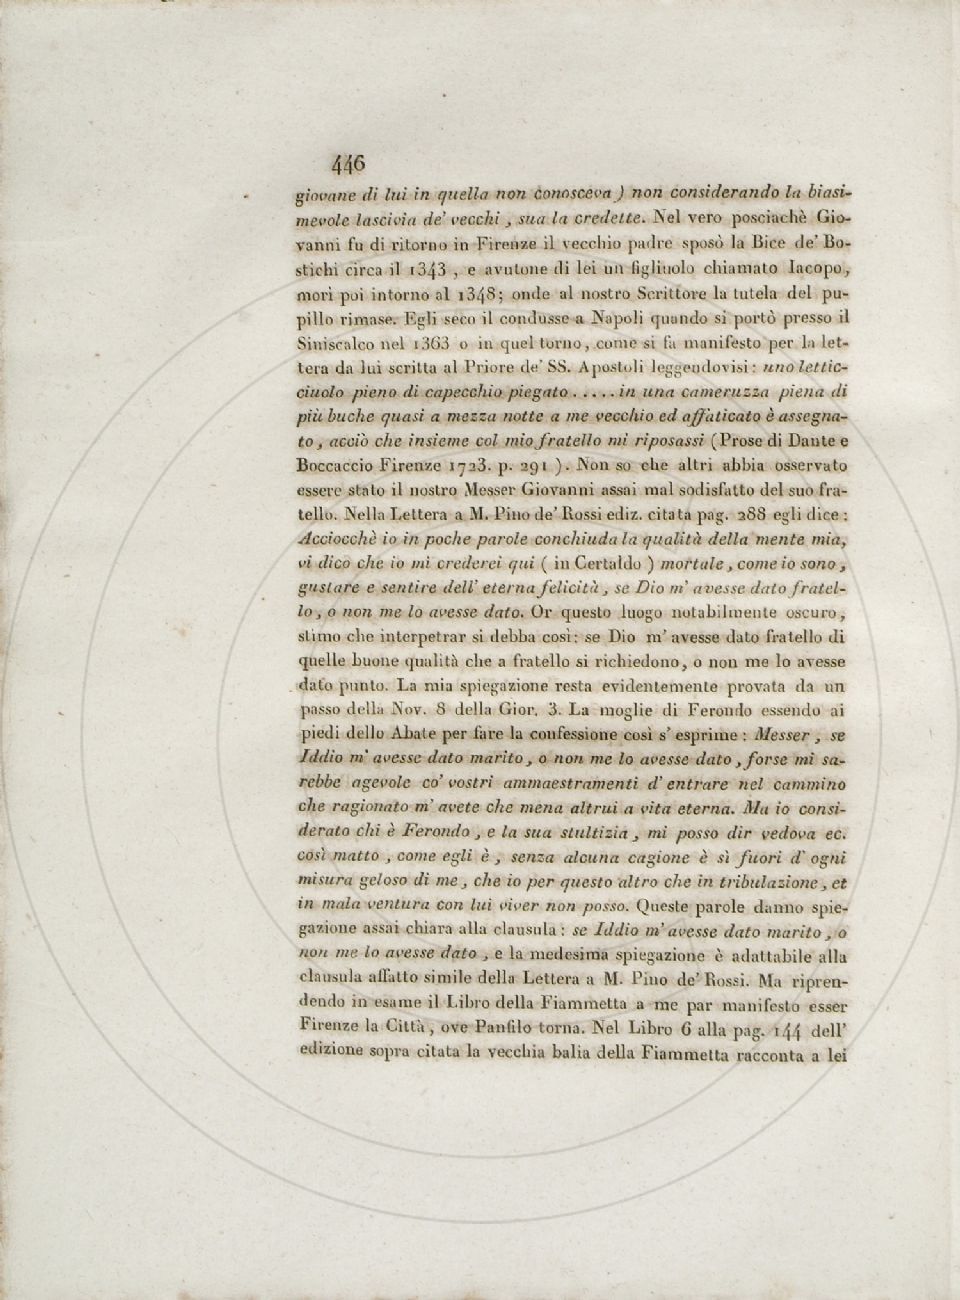 446
giovane di lui in quella non conosceva ) non considerando la biasi-
mevole lascivia de' vecchi , sua la credette. Nel vero posciachè Gio-
vanni fu di ritorno in Firenze il vecchio padre sposò la Bice de' Bo-
stichi circa il 1343 , e avutone di lei un figliuolo chiamato Iacopo,
morì poi intorno al 1348; onde al nostro Scrittore la tutela del pu-
pillo rimase. Egli seco il condusse a Napoli quando si portò presso il
Siniscalco nel 1363 o in quel torno, come si fa manifesto per la let-
tera da lui scritta al Priore de' SS. Apostoli leggendovisi : uno lettic-
ciuolo pieno di capecchio piegato ..... in una cameruzza piena di
più buche quasi a mezza notte a me vecchio ed affaticato è assegna-
to , acciò che insieme col mio fratello mi riposassi (Prose di Dante e
Boccaccio Firenze 1723. p. 291 ). Non so che altri abbia osservato
essere stato il nostro Messer Giovanni assai mal sodisfatto del suo fra-
tello. Nella Lettera a M. Pino de' Rossi ediz. citata pag. 288 egli dice :
Acciocchè io in poche parole conchiuda la qualità della mente mia,
vi dico che io mi crederei qui ( in Certaldo ) mortale , come io sono ,
gustare e sentire dell' eterna felicità , se Dio m' avesse dato fratel-
lo , o non me lo avesse dato. Or questo luogo notabilmente oscuro,
stimo che interpetrar si debba così: se Dio m' avesse dato fratello di
quelle buone qualità che a fratello si richiedono, o non me lo avesse
dato punto. La mia spiegazione resta evidentemente provata da un
passo della Nov. 8 della Gior. 3. La moglie di Ferondo essendo ai
piedi dello Abate per fare la confessione così s' esprime : Messer , se
Iddio m' avesse dato marito , o non me lo avesse dato , forse mi sa-
rebbe agevole co' vostri ammaestramenti d' entrare nel cammino
che ragionato m' avete che mena altrui a vita eterna. Ma io consi-
derato chi è Ferondo , e la sua stultizia , mi posso dir vedova ec.
così matto , come egli è , senza alcuna cagione è sì fuori d' ogni
misura geloso di me , che io per questo altro che in tribulazione , et
in mala ventura con lui viver non posso. Queste parole danno spie-
gazione assai chiara alla clausula : se Iddio m' avesse dato marito , o
non me lo avesse dato , e la medesima spiegazione è adattabile alla
clausula affatto simile della Lettera a M. Pino de' Rossi. Ma ripren-
dendo in esame il Libro della Fiammetta a me par manifesto esser
Firenze la Città , ove Panfilo torna. Nel Libro 6 alla pag. 144 dell'
edizione sopra citata la vecchia balia della Fiammetta racconta a lei